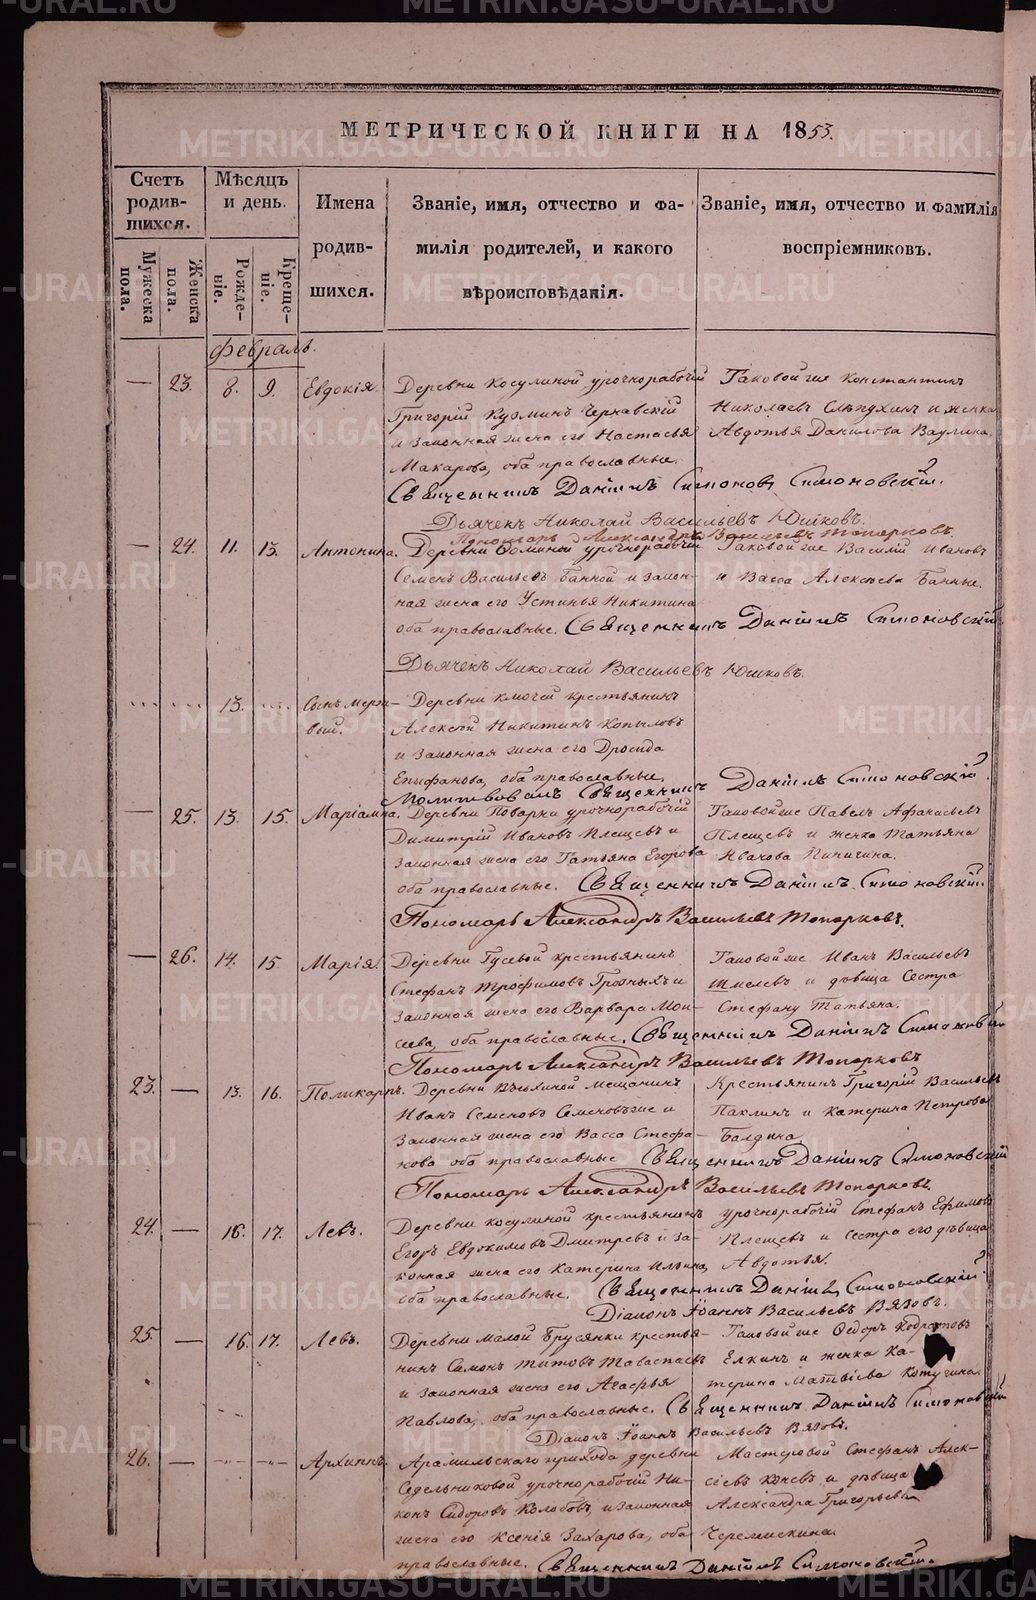 МЕТРИЧЕСКОЙ КНИГИ НА 1853.
Счетъ родив-шихся.
Мужеска пола.
Женска пола.
Мѣсяцъ и день.
Рожде-ніе.
Креще-ніе.
Имена родив-шихся.
Званіе, имя, отчество и фа-
милія родителей, и какого
вѣроисповѣданія.
Званіе, имя, отчество и фамилія
воспріемниковъ.
Февраль.
— 23. 8. 9. Евдокія.
Деревни Косулиной урочнорабочій
Григорій Кузминъ Чернавскій
и законная жена его Настасья
Макарова, оба православные.
Таковой же Константинъ
Николаевъ Слѣпухинъ и женка
Авдотья Данилова Ваулина.
Священникъ Даніилъ Симоновъ Симоновскій.
Дьячекъ Николай Васильевъ Юшковъ.
Пономарь Александръ Васильевъ Топорковъ.
— 24. 11. 13. Антонина.
Деревни Фоминой урочнорабочій
Семенъ Васильевъ Банной и закон-
ная жена его Устинья Никитина
оба православные.
Таковой же Василій Ивановъ
и Васса Алексѣева Банные.
Священникъ Даніилъ Симоновскій
Дьячекъ Николай Васильевъ Юшковъ.
13. Сынъ мерт-
вый.
Деревни Ключей крестьянинъ
Алексѣй Никитинъ Копыловъ
и законная жена его Дросида
Епифанова, оба православные.
Молитвовалъ Священникъ Даніилъ Симоновскій
— 25. 13. 15. Маріамна.
Деревни Поварни урочнорабочій
Димитрій Ивановъ Плещевъ и
законная жена его Татьяна Егорова
оба православные.
Таковой же Павелъ Афанасьевъ
Плещевъ и женка Татьяна
Иванова Пиничина.
Священникъ Даніилъ Симоновскій.
Пономарь Александръ Васильевъ Топорковъ.
— 26. 14. 15. Марія.
Деревни Гусевой крестьянинъ
Стефанъ Трофимовъ Грозныхъ и
законная жена его Варвара Мои-
сеева, оба православные.
Таковой же Иванъ Васильевъ
Шмелевъ и дѣвица Сестра
Стефану Татьяна.
Священникъ Даніилъ Симоновскій
Пономарь Александръ Васильевъ Топорковъ
23. — 13. 16. Поликарпъ.
Деревни мещанинъ
Иванъ Семеновъ и
законная жена его Васса Стефа-
нова оба православные
Крестьянинъ Григорій Васильевъ
Паклинъ и Катерина Петрова
Балдина
Священникъ Даніилъ Симоновскій
Пономарь Александръ Васильевъ Топорковъ.
24. — 16. 17. Левъ.
Деревни Косулиной крестьянинъ
Егоръ Евдокимовъ Дмитревъ и за-
конная жена его Катерина Ильина,
оба православные.
урочнорабочій Стефанъ Ефимовъ
Плещевъ и сестра его дѣвица
Авдотья.
Священникъ Даніилъ Симоновскій
Діаконъ Іоаннъ Васильевъ Вязовъ.
25. — 16. 17. Левъ.
Деревни Малой Брусянки крестья-
нинъ Симонъ Титовъ
и законная жена его Агафья
Павлова, оба православные.
Таковой же Федоръ Кодратовъ
Елкинъ и женка Ка-
терина Матвѣева
Священникъ Даніилъ Симоновскій
Діаконъ Іоаннъ Васильевъ Вязовъ.
26. — Архипъ.
Арамильскаго прихода деревни
Седельниковой урочнорабочій Ни-
конъ Сидоровъ Колобовъ, и законная
жена его Ксенія Захарова, оба
православные.
Мастеровой Стефанъ Алек-
сѣевъ Коневъ и дѣвица
Александра Григорьева
Черемискина
Священникъ Даніилъ Симоновскій.
METRIKI.GASU-URAL.RU